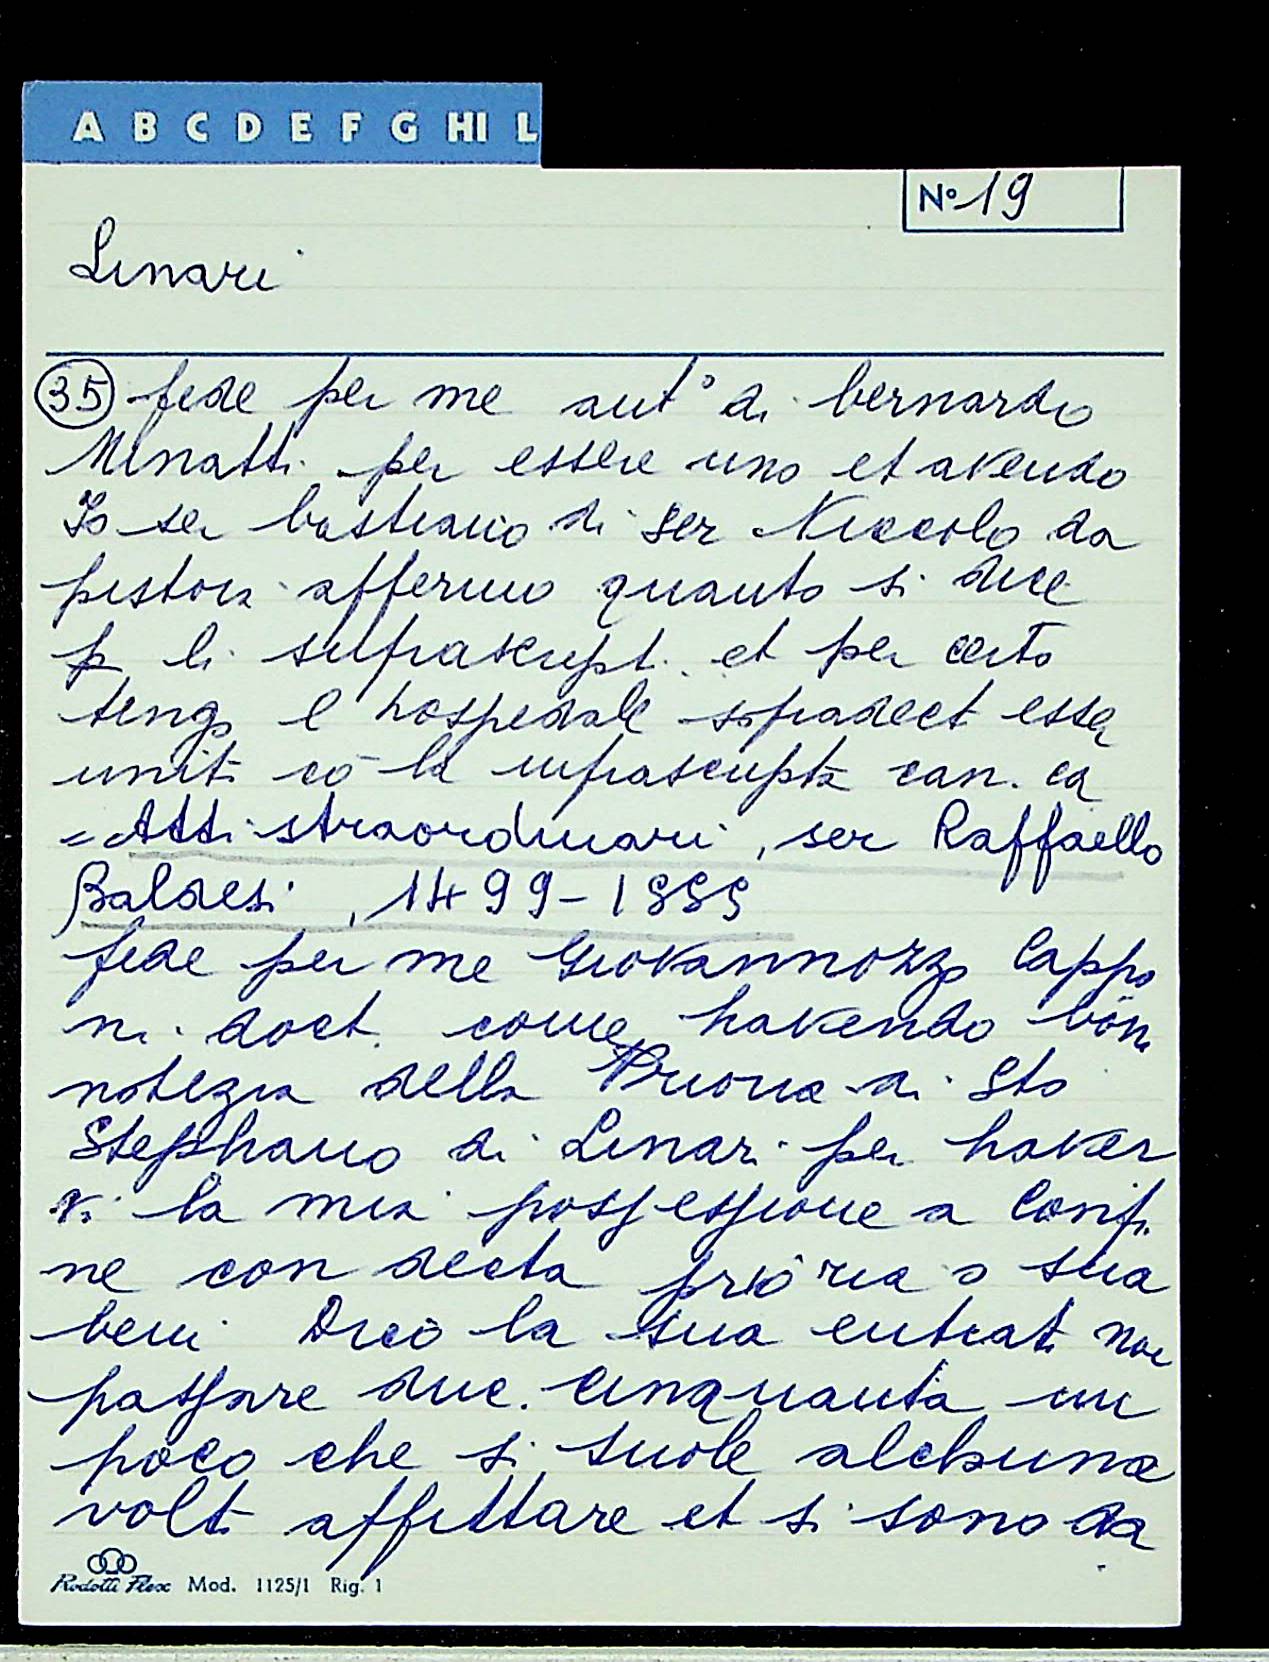 A B C D E F G HI L
Nº 19
Linari
35 fede per me antº di bernardo
Minatti per essere uno et avendo
Io ser bastiano di ser Niccolo da
pistoia affermo quanto si dice
p li suprascript. et per certo
tengo l'hospedale sopradect esse
unit cō la infrascripta can. ca
= Atti straordinari, ser Raffaello
Baldesi, 1499-1555
fede per me Giovannozzo Cappo
ni doct. come havendo bōn
notizia della Prioria di Sto
Stephano di Linari per haver
vi la mia possessione a Confi
ne con decta prioria o sua
beni Dico la sua entrat non
passare duc. cinquanta un
poco che si suole alchuna
volt affittare et si sono da
Rodotti Flex Mod. 1125/1 Rig. 1